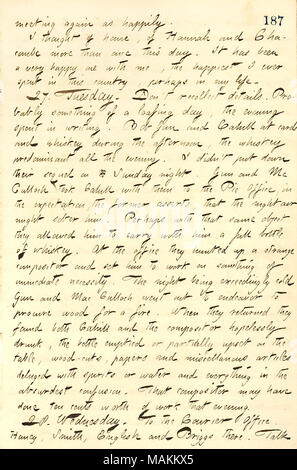 187
meeting again as happily.
I thought of home, of Hannah and Cha-
combe more than ave this day. It has been
a very happy one with me the happiest I ever
spent in this country, perhaps in my life.
27. Tuesday. Don't recollect details. Pro-
bably something of a loafing day, the evening
spent in writing. Pot Gun and Cahill at cards
and whiskey during the afternoon, the whiskey
predominant all the evening. I didn't put down
their sequel on Sunday night. Gun and Mac
Culloch took Cahill with them to the Pic Office in
the expectation the former asserts, that the night air
might sober him. Perhaps with that same object
they allowed him to carry with him a full bottle
of whiskey. At the office they hunted up a strange
compositor and set him to work on something of
immediate necessity. The night being exceedingly cold
Gun and Mac Culloch went out to endeavor to
procure wood for a fire. When they returned they
found both Cahill and the compositor hopelessly
drunk, the bottle emptied or partially upset on the
table, wood-cuts, papers and miscellanous articles
deluged with spirits or water and everything in the
absurdest confusion. That compositor may have
done ten cents worth of work that evening.
28. Wednesday. To the Courier Office.
Haney, Smith, English and Briggs there. Talk
alamy
Image ID: MAKKX5
www.alamy.com